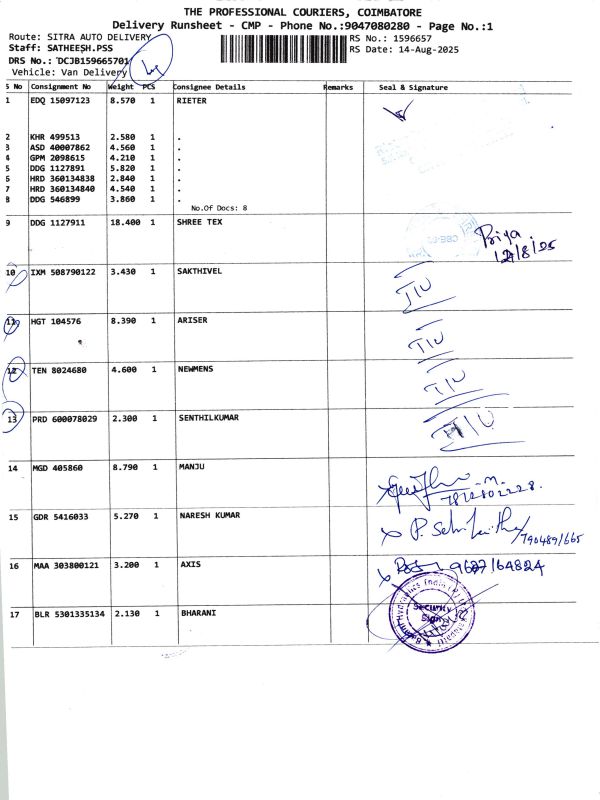 THE PROFESSIONAL COURIERS, COIMBATORE
Delivery Runsheet - CMP - Phone No.:9047080280 - Page No.:1
Route: SITRA AUTO DELIVERY
RS No.: 1596657
Staff: SATHEESH.PSS
RS Date: 14-Aug-2025
DRS No.: DCJB159665701
Vehicle: Van Delivery
S No Consignment No Weight PCS Consignee Details Remarks Seal & Signature
1 EDQ 15097123 8.570 1 RIETER
2 KHR 499513 2.580 1 .
3 ASD 40007862 4.560 1 .
4 GPM 2098615 4.210 1 .
5 DDG 1127891 5.820 1 .
6 HRD 360134838 2.840 1 .
7 HRD 360134840 4.540 1 .
8 DDG 546899 3.860 1 .
No.Of Docs: 8
9 DDG 1127911 18.400 1 SHREE TEX
Priya
10 IXM 508790122 3.430 1 SAKTHIVEL
11 HGT 104576 8.390 1 ARISER
12 TEN 8024680 4.600 1 NEWMENS
13 PRD 600078029 2.300 1 SENTHILKUMAR
14 MGD 405860 8.790 1 MANJU
15 GDR 5416033 5.270 1 NARESH KUMAR
16 MAA 303800121 3.200 1 AXIS
17 BLR 5301335134 2.130 1 BHARANI
Security
Sign